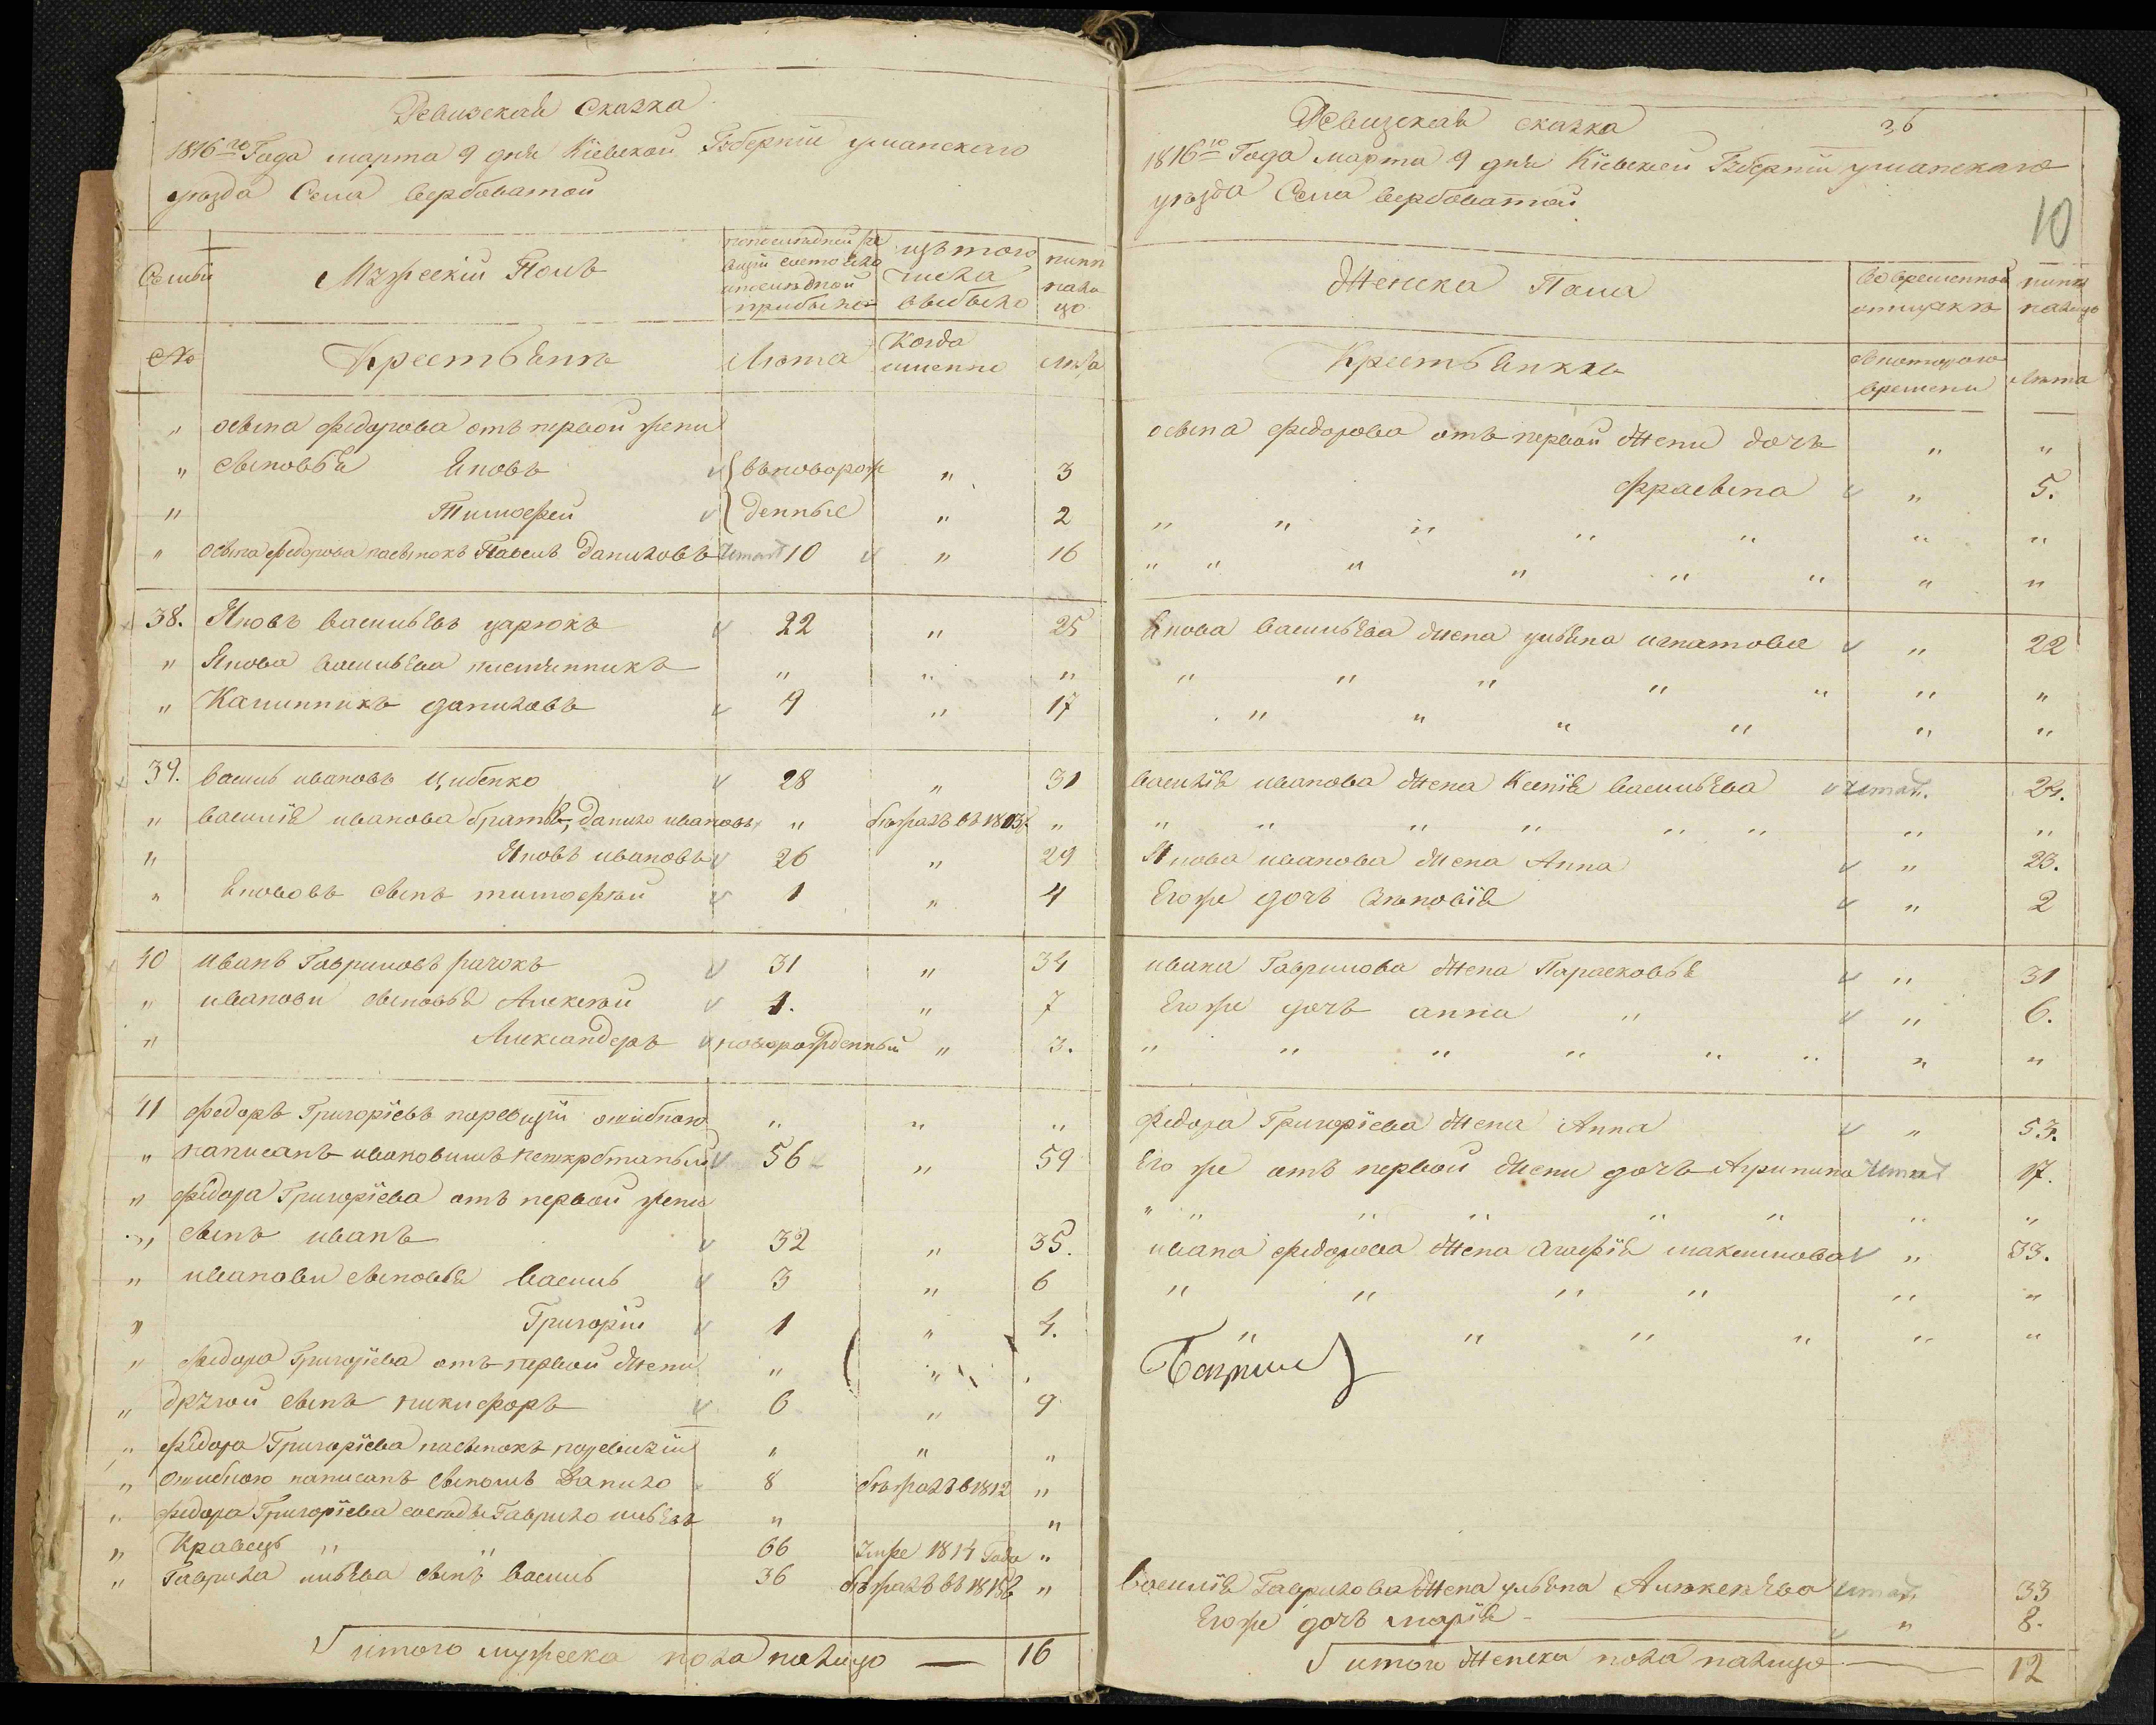 Ревизская Сказка
1816го Года марта 9 дня Кіевской Губерніи уманского
уезда Села вербоватой
Семьи
Мужескій Полъ
по последней ре
визіи состояло
и после одной
прибыло
изъ того
числа
выбыло
ныне
нали
цо
No
Крестьяне
Лета
Когда
именно
лета
" осипа федорова отъ первой жени
" сыновья Яковъ { въноворож " 3
" Тимофей { денные " 2
" осипа федорова пасынокъ Павелъ даниловъ 10 " 16
38. Яковъ васильевъ царюкъ 22 " 25
" Якова васильева племянникъ " " "
" Калинникъ даниловъ 4 " 17
39. василь ивановъ Цибенко 28 " 31
" василія иванова братья, данило ивановъ " бежалъ въ 1813 "
" Яковъ ивановъ 26 " 29
" Якововъ сынъ тимофей 1 " 4
40 иванъ Гавриловъ рачокъ 31 " 34
" иванови сыновья Алексей 4. " 7
" Александеръ новорожденный " 3.
41 федоръ Григоріевъ поревизіи ошибкою " " "
" написанъ ивановимъ 56 " 59
" федора Григоріева отъ первой жени
" сынъ иванъ 32 " 35.
" иванови сыновья василь 3 " 6
" Григорій 1 " 4.
" федора Григоріева отъ первой жени " "
" другой сынъ никифоръ 6 " 9
" федора Григоріева пасынокъ поревизіи " " "
" ошибкою написанъ сыномъ данило 8 бежалъ в 1812 "
" федора Григоріева соседъ Гаврило " "
" Кравецъ " 66 Умре 1814 Года "
" Гаврила сынъ василь 36 бежалъ въ 1815 "
итого мужеска пола налицо — 16
Ревизская сказка 36
1816го Года марта 9 дня Кіевской Губерніи уманскаго
уезда Села вербоватой
10
Женска Пола
во временной
отлучке
ныне
налицо
Крестьянки
скотораго
времени
лета
осипа федорова отъ первой жени дочь " "
ефросина " 5.
" " " " " " "
" " " " " " " "
Якова васильева жена ульяна игнатова " 22
" " " " " " "
" " " " " "
василія иванова жена Ксенія васильева 24.
" " " " " " " "
Якова иванова жена Анна " 23.
Его же дочь Зеновія " 2
ивана Гаврилова жена Парасковья " 31
Его же дочь анна " " 6.
" " " " " " " "
федора Григоріева жена Анна " 53.
Его же отъ первой жени дочь Агрипина 17.
" " " " " " " "
ивана федорова жена Агафія максимова " 33.
" " " " " "
" " " " " "
василія Гаврилова жена ульяна Алексеева 33
Его же дочь марія " 8.
итого женска пола налицо — 12